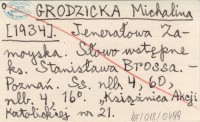 GRODZICKA Michalina
[1934]. Jenerałowa Za-
moyska. Słowo wstępne
ks. Stanisława Brossa. -
Poznań. Ss. nlb. 4, 60,
nlb. 4, 16°. „Książnica Akcji
Katolickiej nr. 21.